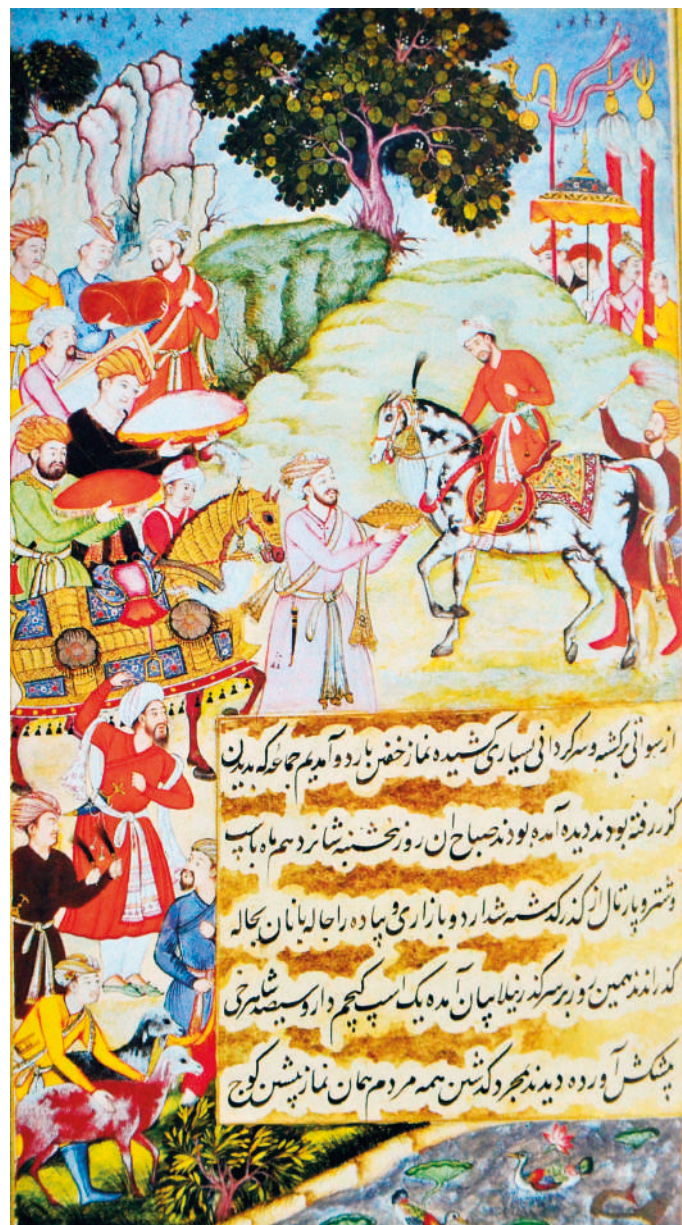 از سواتی برگشته و سرگردانی بسیاری کشیده نماز خفتن باردو آمدیم جماعه که بدیدن
گذر رفته بودند دیده آمده بودند صباح آن روز پنجشنبه شانزدهم ماه باسپ
و شتر و پارتال از گذر گذشته شد اردو بازاری و پیاده را جاله بانان بجاله
گذراندند همین روز بر سر گذر نیلابیان آمده یک اسپ کیچم دار و سیصد شاهرخی
پیشکش آورده دیدند بمجرد گذشتن همه مردم همان نماز پیشین کوچ